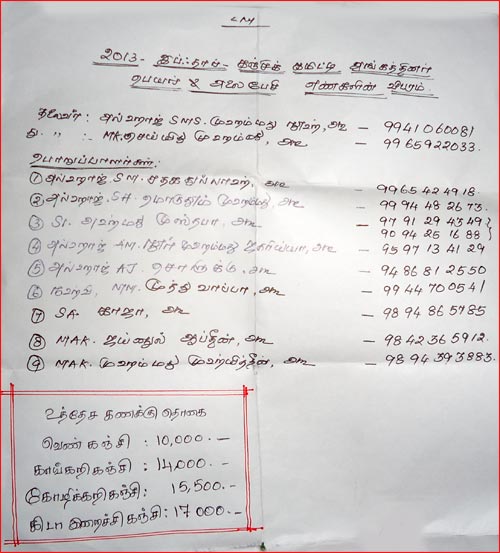 2013- இப்தார்- கஞ்சிக் கமிட்டி அங்கத்தினர்
பெயர் & அலைபேசி எண்களின் விபரம்
தலைவர் : அல்ஹாஜ் S.M.S. முஹம்மது நூஹு, அவ - 9941060081
து. " : - MK. செய்யிது முஹம்மது, அவ - 9965922033.
பொறுப்பாளர்கள்:
① அல்ஹாஜ் S.M. சதக்கதுல்லாஹ், அவ - 9965424918.
② அல்ஹாஜ் S.H. முஹம்மது, அவ - 9994482673.
③ S.I. அஹ்மது முஸ்தபா, அவ - 9791294349
9094251688
④ அல்ஹாஜ் A.M. நூர் முஹம்மது ஜகரிய்யா, அவ - 9597134129
⑤ அல்ஹாஜ் A.J. அவ - 9486812550
⑥ M.M. முத்து வாப்பா, அவ - 9944700541
⑦ S.A. காஜா, அவ - 9894865785
⑧ M.A.K. ஜெய்னுல் ஆப்தீன், அவ - 9842365912.
⑨ M.A.K. முஹம்மது முஹ்யித்தீன், அவ - 9894393883.
உத்தேச கணக்கு தொகை
வெண் கஞ்சி : 10,000.-
காய்கறி கஞ்சி : 14,000.-
கோழிக்கறி கஞ்சி : 15,500.-
கிடா இறைச்சி கஞ்சி : 17000.-